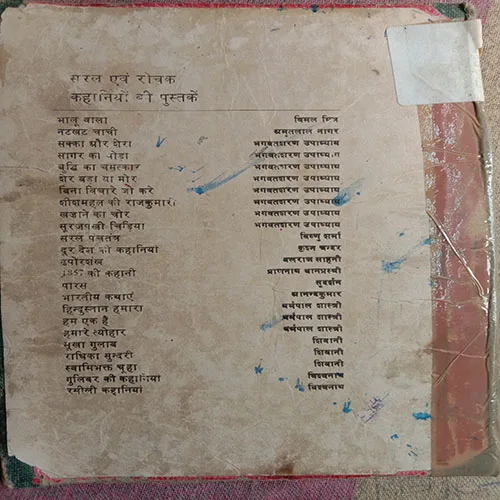 सरल एवं रोचक
कहानियों की पुस्तकें
भालू वाला विमल मित्र
नटखट चाची अमृतलाल नागर
सक्का और शेरा भगवतशरण उपाध्याय
सागर का घोड़ा भगवतशरण उपाध्याय
बुद्धि का चमत्कार भगवतशरण उपाध्याय
शेर बड़ा या मोर भगवतशरण उपाध्याय
बिना विचारे जो करे भगवतशरण उपाध्याय
शीशमहल की राजकुमारी भगवतशरण उपाध्याय
खजाने का चोर भगवतशरण उपाध्याय
सूरजपंखी चिड़िया भगवतशरण उपाध्याय
सरल पंचतंत्र विष्णु शर्मा
दूर देश की कहानियां कृशन चन्दर
ढपोरशंख बलराज साहनी
1857 की कहानी प्राणनाथ वानप्रस्थी
पारस सुदर्शन
भारतीय कथाएं आनन्दकुमार
हिन्दुस्तान हमारा धर्मपाल शास्त्री
हम एक हैं धर्मपाल शास्त्री
हमारे त्योहार धर्मपाल शास्त्री
सूखा गुलाब शिवानी
राधिका सुन्दरी शिवानी
स्वामिभक्त चूहा शिवानी
गुलिवर की कहानियां विश्वनाथ
रसीली कहानियां विश्वनाथ